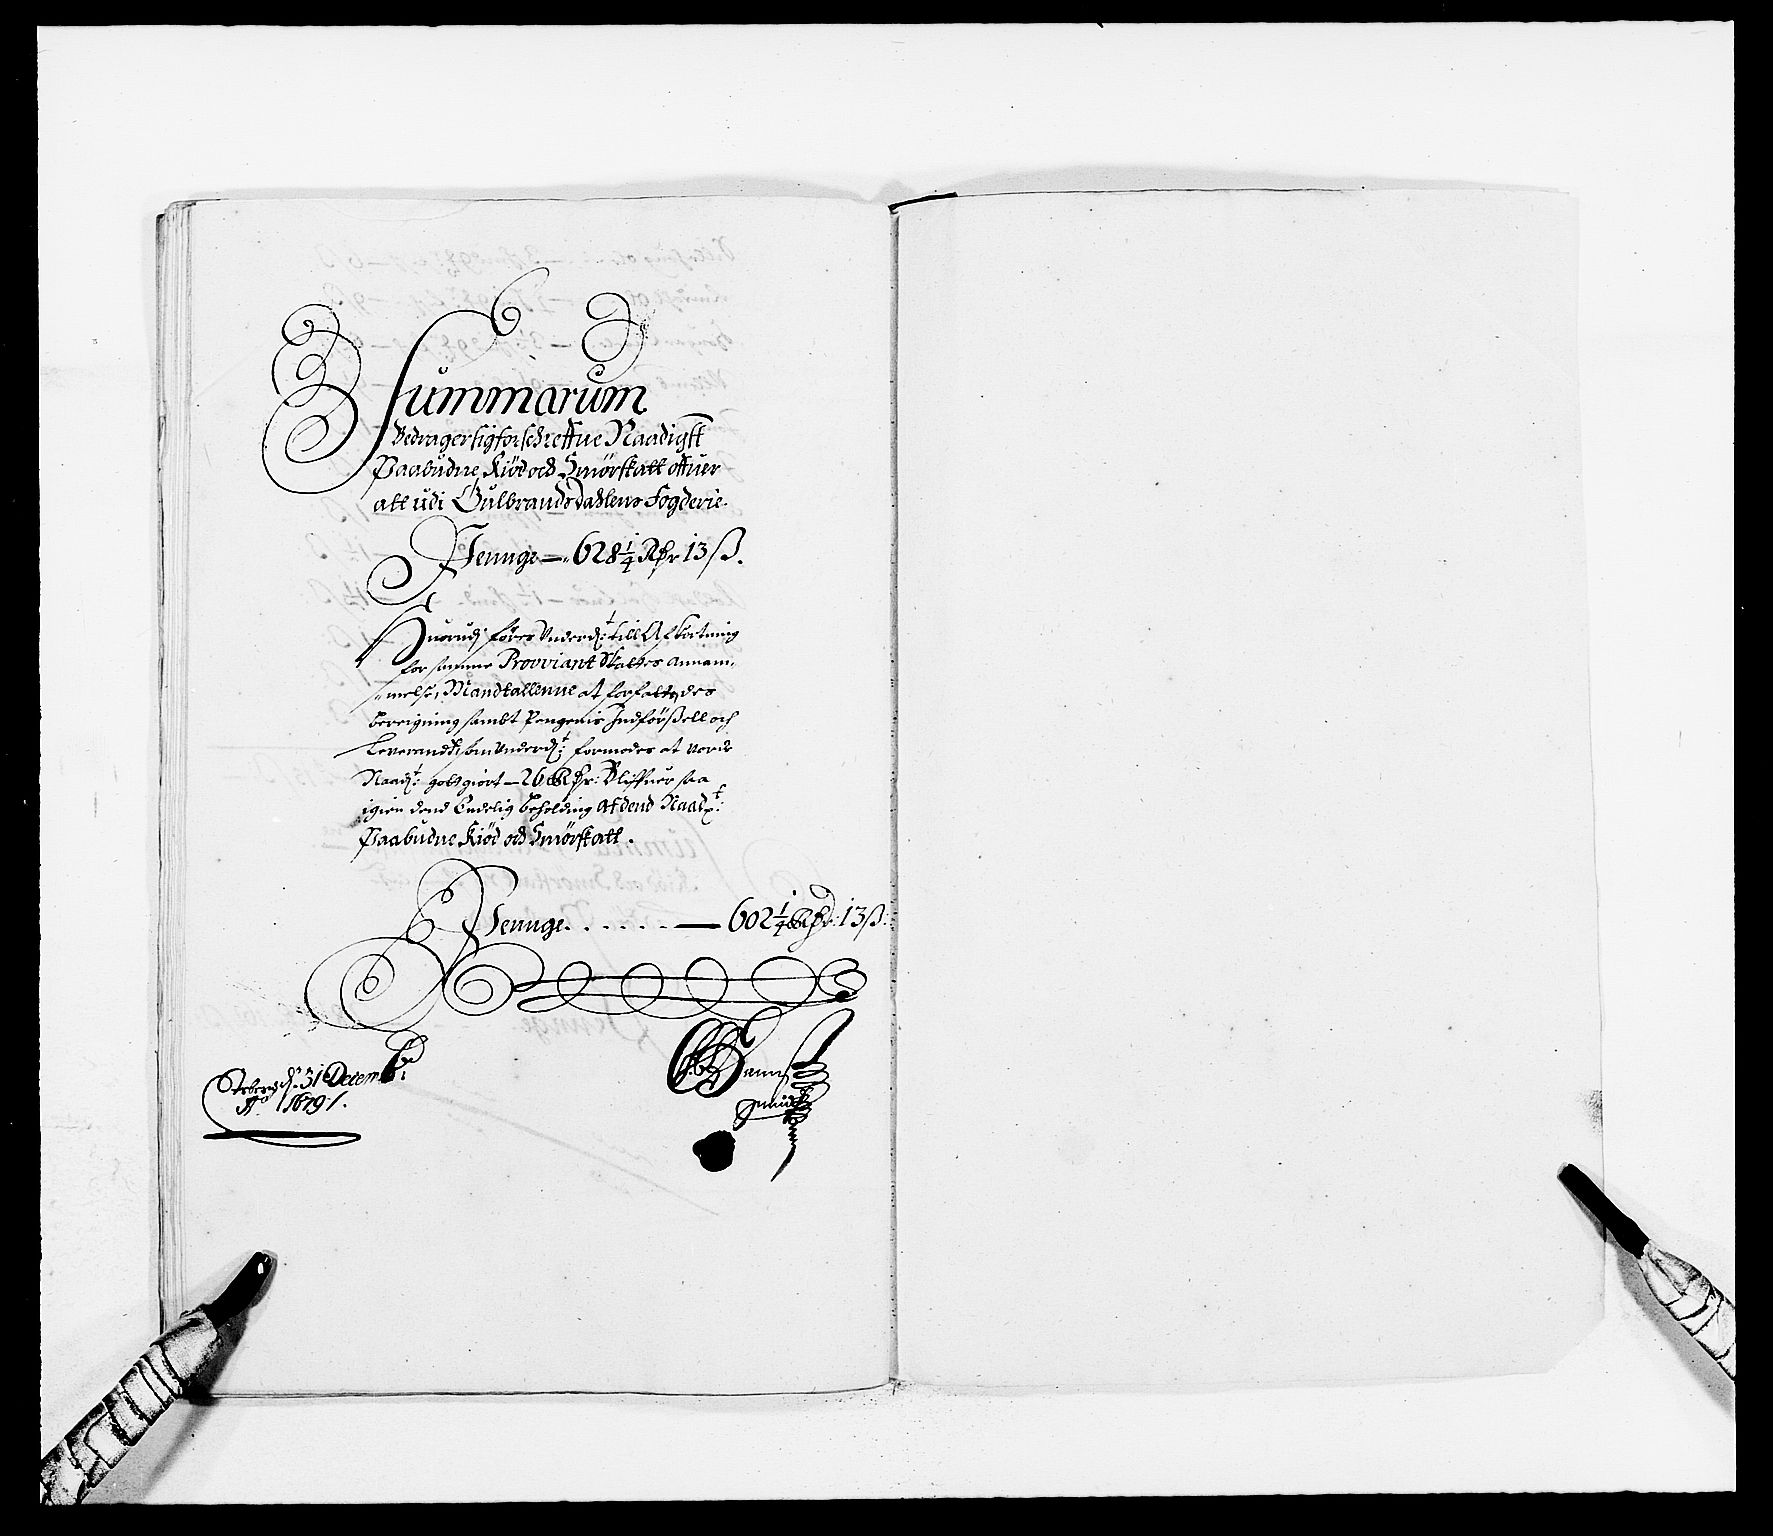 Summarum
Bedrager sig forschreffne Naadigst
Paabudne Kiöd och Smörskatt offuer
alt udi Gulbrandsdahlens Fogderie
Penge — 628¼ Rdr 13 ß.
Huorudj föres Underd: till Afkortning
for samme Provviant Skattes annam-
melse, Mandtallenne at forfatte, des
Bereigning sambt Pengenis Indförßell och
Leverandtz, som Underd:t formodes at vorde
Naad:t gott giort — 26 Rdr: Bliffuer saa
igien dend Endelig Beholding af dend Naad:t
Paabudne Kiöd och Smörskatt.
Penge . . . . . — 602¼ Rdr: 13 ß:
d: 31 Decemb:
Ao 1679.
Hanns